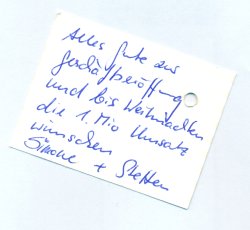 Alles Gute zur
Geschäftseröffnung
und bis Weihnachten
die 1. Mio Umsatz
wünschen
Simone + Steffen